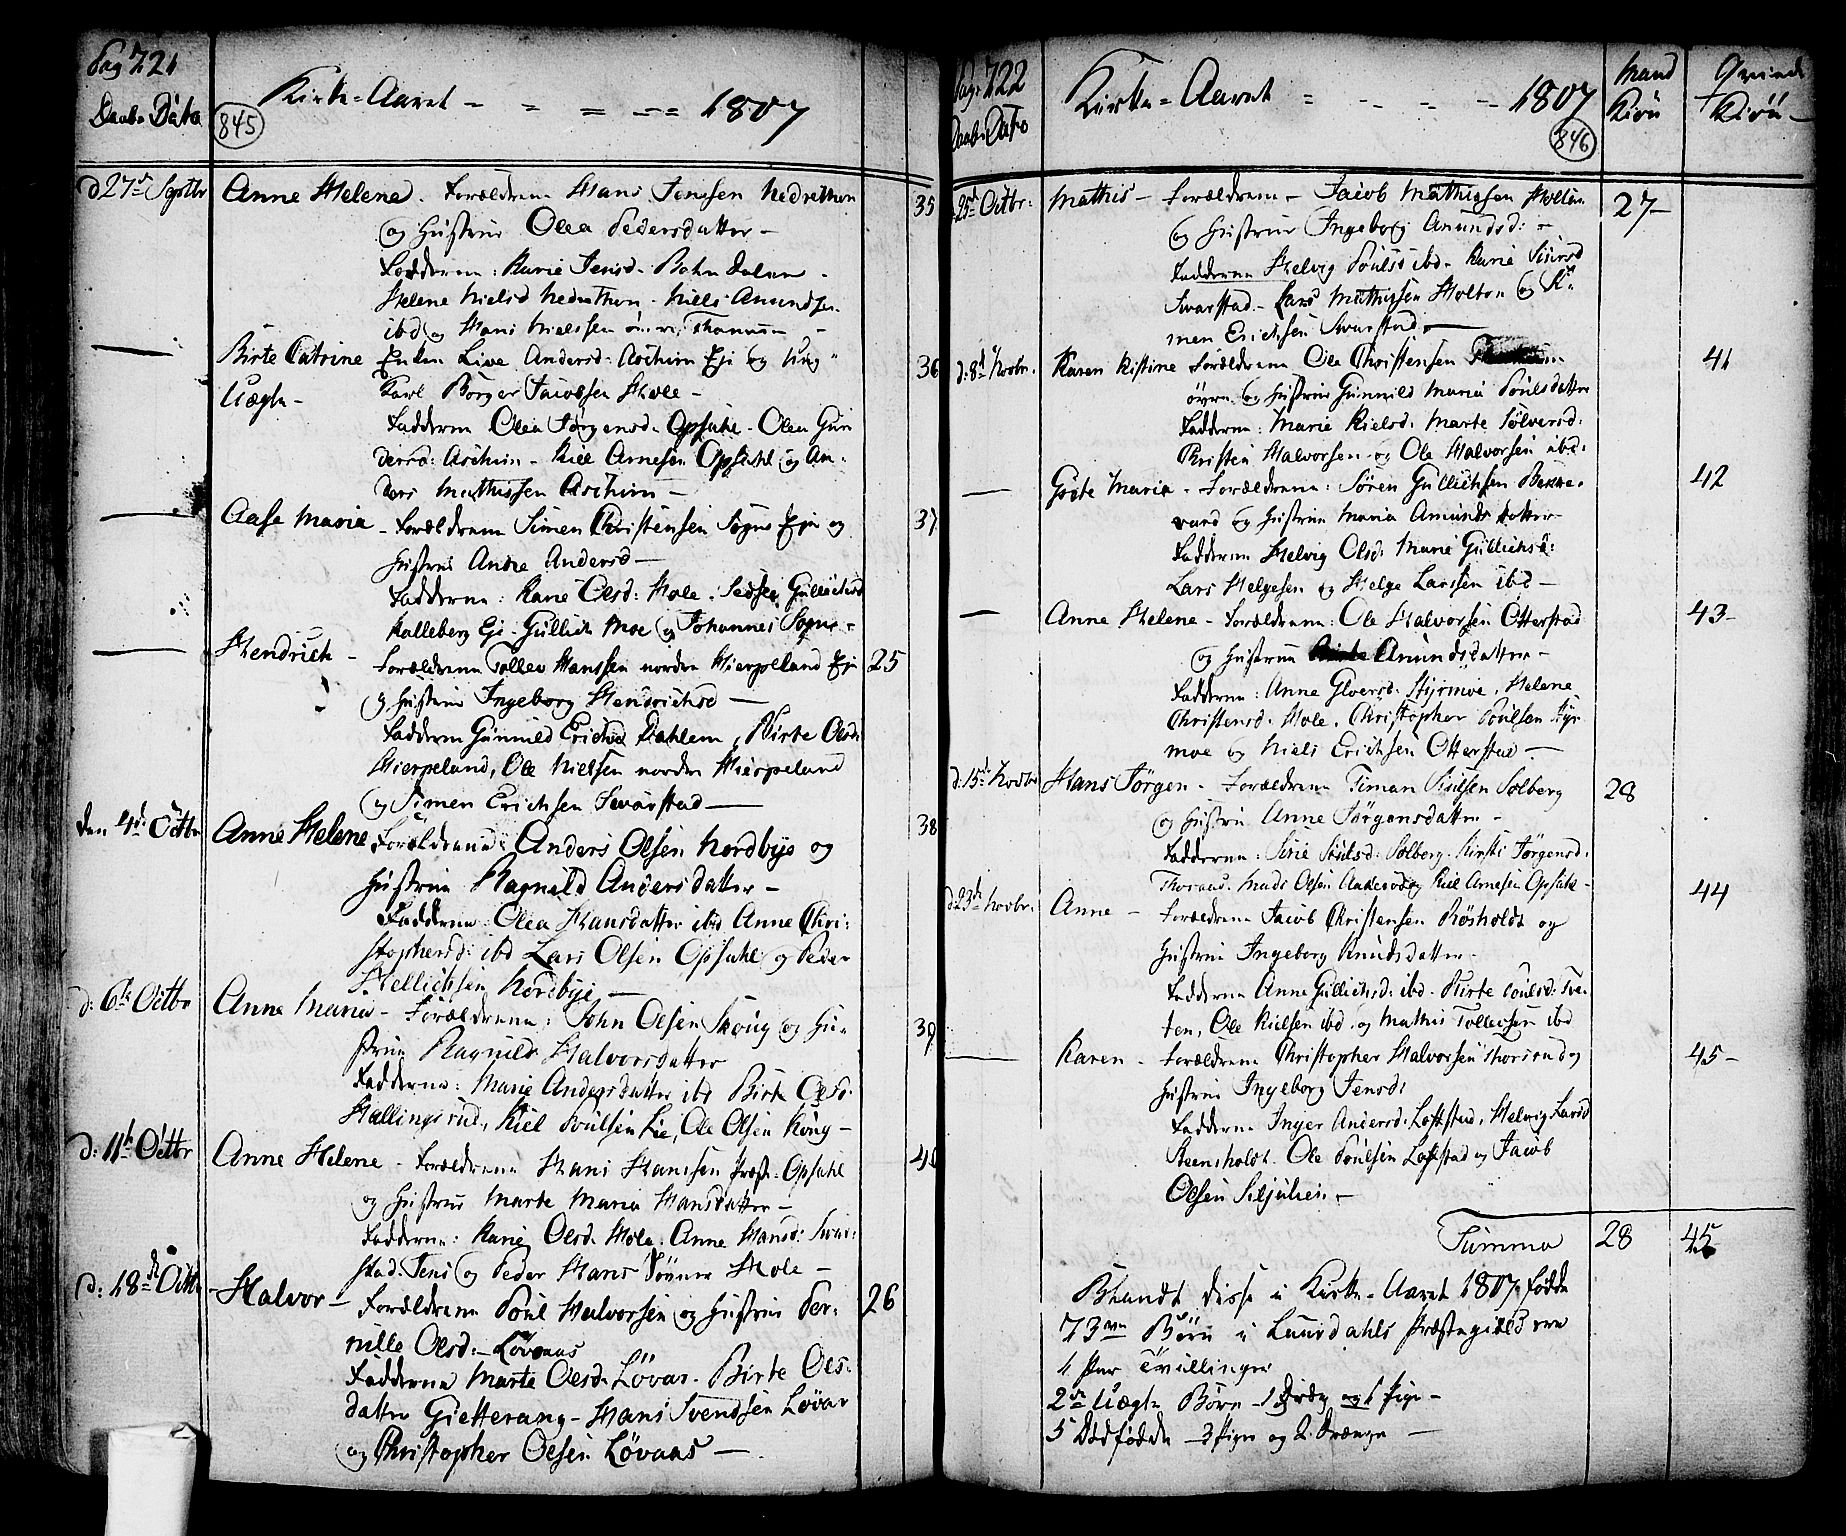 Pag 721
Daabs Dato
845
Kirke-Aaret - - = = - - = 1807
d 27de Septbr Anne Helene. Forældrene Hans Jenssen Nedrethon 35
og Hustrue Olea Pedersdatter -
Fadderne: Karie Jensd.
Helene Nielsd Nedrethon - Niels Amundsen
ibd og Hans Nielssen
Birte Catrine Enken Live Andersd: Aschim Eje og Ung 36
Uægte -
Karl Børger Jacobsen Hole -
Fadderne Olea Jørgensd. Opsahl - Olea Gun
dersd: Aschim - Kiel Arnesen Opsahl og An-
ders Mathissen Aschim -
Aase Maria - Forældrene Simen Christensen Sogne Eje og 37
Hustrue Andrea Andersd -
Fadderne: Karie Olsd: Hole. Gullichsd
Kalleberg Eje. Gullich Moe og Johannes Sogne -
Hendrich - Forældrene Tollev Hanssen nordre Hierpeland Eje 25
og Hustrue Ingeborg Hendrichsd -
Fadderne Gunnild Erichsd Dahlem, Birte Olsd:
Hierpeland, Ole Nielsen nordre Hierpeland
og Simen Erichsen Svarstad -
den 4de Octbr Anne Helene Forældrene: Anders Olsen Nordbye og 38
Hustrue Ragnild Andersdatter -
Fadderne: Olea Hansdatter ibd. Anne Chri-
stophersd: ibd Lars Olsen Opsahl og Peder
Hellichsen Nordbye -
d: 6te Octbr Anne Maria - Forældrene: John Olsen Skoug og Hu- 39
strue Ragnild Halvorsdatter
Fadderne: Marie Andersdatter ibd Birte Olsd.
Hallingsrud, Kiel Poulsen Lie, Ole Olsen Skoug -
d: 11te Octbr Anne Helene - Forældrene Hans Hanssen Præst. Opsahl 40
og Hustrue Marte Maria Hansdatter -
Fadderne: Karie Olsd. Hole. Anne Hansd: Svar-
stad. Jens og Peder Hans Sønner Hole -
d: 18de Octbr - Halvor - Forældrene Poul Halvorsen og Hustrue Per- 26
nille Olsd. - Løvaas
Fadderne Marte Olsd. Løvas. Birte Ols-
datter Gietterang - Hans Svendsen Løvas
og Christopher Olsen Løvaas -
Pag. 722
Daabs Dato
Kirke-Aaret = - - = - - 1807
846
Mand
Kiøn
Qvinde
Kiøn -
25de Octbr: Mathis - Forældrene - Jacob Mathissen Holtan 27 -
og Hustrue Ingeborg Amundsd: -
Fadderne Helvig Poulsd ibd. Karie
Svarstad - Lars Mathissen Holtan og
men Erichsen Svarstad. -
d: 8de Novbr. Karen Kistine Forældrene Ole Christensen 41
øvre og Hustrue Gunnild Maria Poulsdatter
Fadderne: Marie Kielsd: Marte Sølversd:
Christen Halvorsen og Ole Halvorsen ibd:
Grøte Maria - Forældrene: Søren Gullichsen Bakke- 42
rund og Hustrue Maria Amundsdatter
Fadderne Helvig Olsd: Marie Gullichsd:
Lars Helgesen og Helge Larssen ibd -
Anne Helene - Forældrene: Ole Halvorsen Otterstad 43 -
og Hustrue Amundsdatter -
Fadderne: Anne Glversd: Styrmoe, Helene
Christensd. Hole. Christopher Poulsen Styr
moe og Niels Erichsen Otterstad -
d: 15de Novbr Hans Jørgen - Forældrene Timan Poulsen Solberg 28
og Hustrue Anne Jørgensdatter -
Fadderne: Sirie Poulsd: Solberg. Kirsti Jørgensd:
Thorsrud. Mads Olsen Aakerod og Kiel Arnesen Opsahl -
d: 23de Novbr: Anne - Forældrene Jacob Christensen Røsholdt og 44
Hustrue Ingeborg Knudsdatter -
Fadderne Anne Gullichsd: ibd - Birte Poulsd: Tve-
ten, Ole Kielsen ibd. og Mathis Tollevsen ibd
Karen - Forældrene Christopher Halvorsen Thorsrud og 45 -
Hustrue Ingeborg Jensd:
Fadderne Inger Andersd: Loftstad, Helvig Larsd
Steensholdt. Ole Poulsen Lofstad og Jacob
Olsen Siljuhei. -
Summa 28 45
Blandt disse i Kirke-Aaret 1807 Fødde
73 Børn i Laurdahls Præstegield ere
1 Par Tvillinger
2de Uægte Børn - 1 Dreng og 1 Pige -
5 Dødfødde - 3 Piger og 2. Drenge -